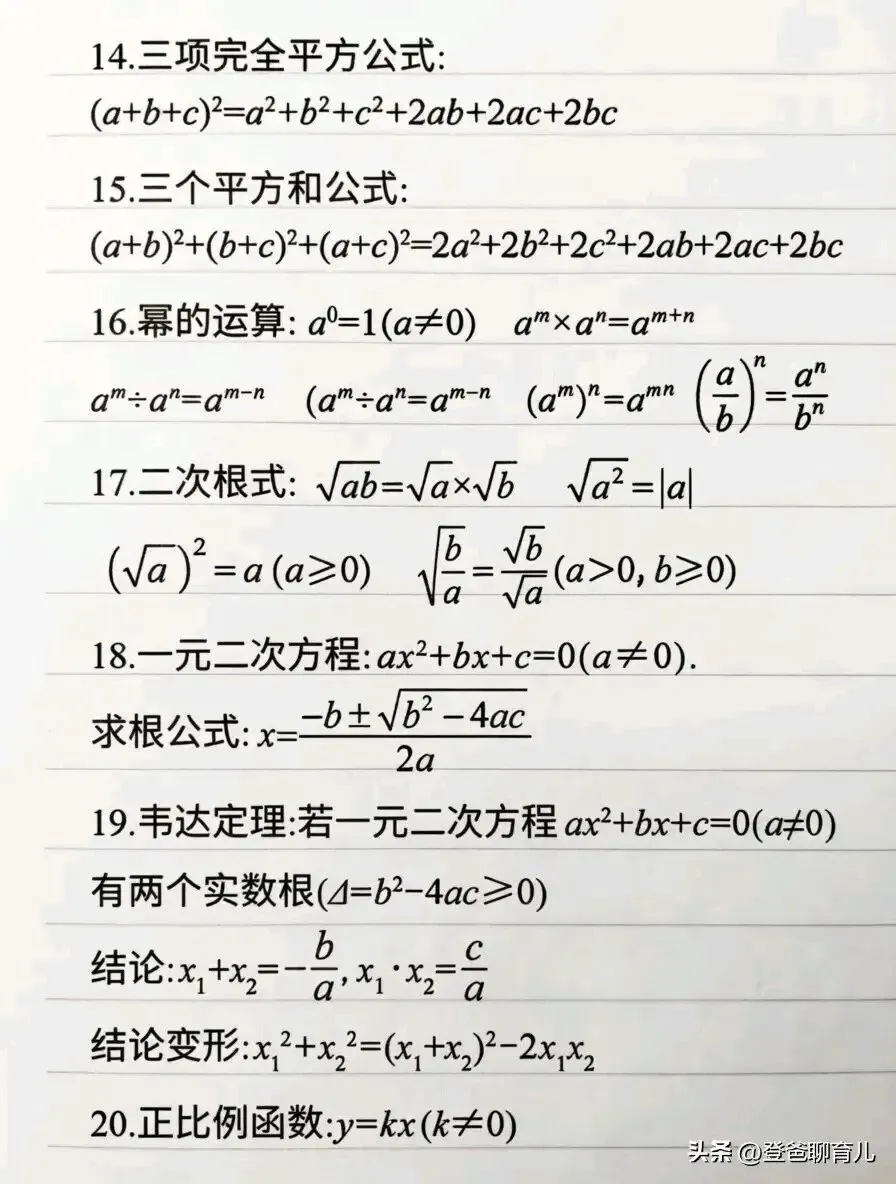 14.三项完全平方公式:
(a+b+c)²=a²+b²+c²+2ab+2ac+2bc
15.三个平方和公式:
(a+b)²+(b+c)²+(a+c)²=2a²+2b²+2c²+2ab+2ac+2bc
16.幂的运算: a⁰=1(a≠0) aᵐ×aⁿ=aᵐ⁺ⁿ
aᵐ÷aⁿ=aᵐ⁻ⁿ (aᵐ÷aⁿ=aᵐ⁻ⁿ (aᵐ)ⁿ=aᵐⁿ (a/b)ⁿ=aⁿ/bⁿ
17.二次根式: √ab=√a×√b √a²=|a|
(√a)²=a(a≥0) √(b/a)=√b/√a(a>0, b≥0)
18.一元二次方程:ax²+bx+c=0(a≠0).
求根公式: x=(-b±√(b²-4ac))/2a
19.韦达定理:若一元二次方程ax²+bx+c=0(a≠0)
有两个实数根(Δ=b²-4ac≥0)
结论:x₁+x₂=-b/a, x₁·x₂=c/a
结论变形:x₁²+x₂²=(x₁+x₂)²-2x₁x₂
20.正比例函数:y=kx(k≠0)
头条 @登爸聊育儿